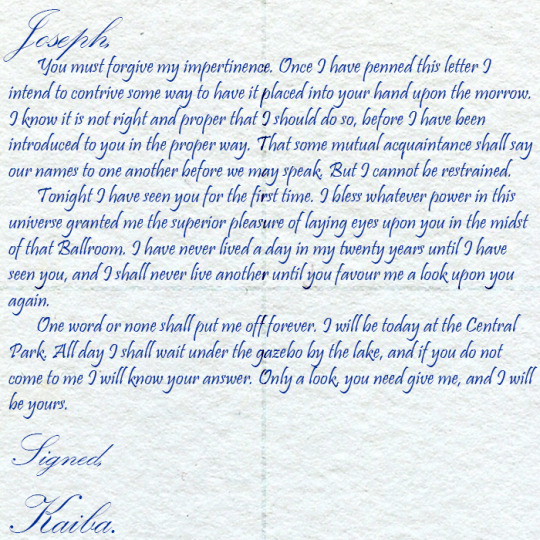 Joseph,
You must forgive my impertinence. Once I have penned this letter I
intend to contrive some way to have it placed into your hand upon the morrow.
I know it is not right and proper that I should do so, before I have been
introduced to you in the proper way. That some mutual acquaintance shall say
our names to one another before we may speak. But I cannot be restrained.
Tonight I have seen you for the first time. I bless whatever power in this
universe granted me the superior pleasure of laying eyes upon you in the midst
of that Ballroom. I have never lived a day in my twenty years until I have
seen you, and I shall never live another until you favour me a look upon you
again.
One word or none shall put me off forever. I will be today at the Central
Park. All day I shall wait under the gazebo by the lake, and if you do not
come to me I will know your answer. Only a look, you need give me, and I will
be yours.
Signed,
Kaiba.